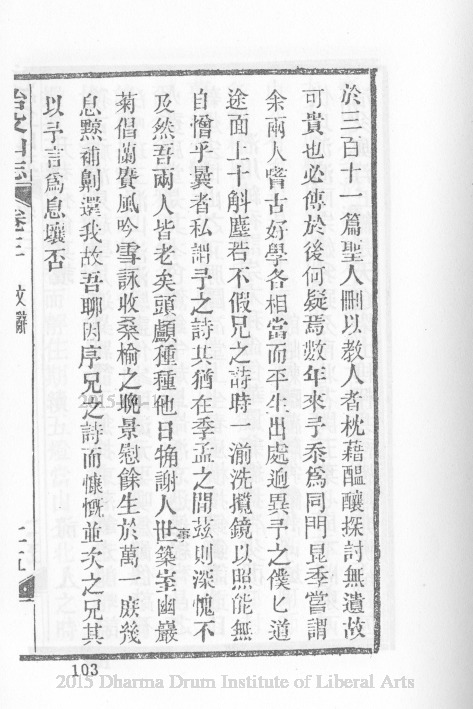 於三百十一篇聖人刪以敎人者枕藉醞釀探討無遺故
可貴也必傳於後何疑焉數年來予忝爲同門昆季嘗謂
余兩人嗜古好學各相當而平生出處逈異予之僕僕道
途面上十斛塵若不假兄之詩時一湔洗攬鏡以照能無
自憎乎曩者私謂予之詩其猶在季孟之間茲則深愧不
及然吾兩人皆老矣頭顱種種他日觕謝人世事築室幽巖
菊倡蘭賡風吟雪詠收桑榆之晩景慰餘生於萬一庶幾
息黥補劓還我故吾聊因序兄之詩而慷慨並次之兄其
以予言爲息壤否
山志
卷三
文辭
二十五
103
2015
2015 Dharma Drum Institute of Liberal Arts